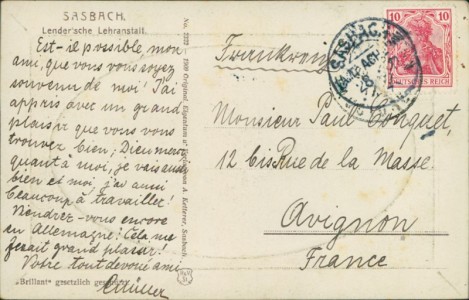 SASBACH.
Lender'sche Lehranstalt.
Est-il possible, mon
ami, que vous vous soyez
souvenu de moi! J'ai
appris avec un grand
plaisir que vous vous
trouvez bien; Dieu merci
quant à moi, je vais aussi
bien et moi, j'ai aussi
beaucoup à travailler!
Viendrez-vous encore
en Allemagne? Cela me
ferait grand plaisir!
Votre tout dévoué ami
"Brillant" gesetzlich geschützt
No. 2222 – 1909 Original, Eigentum u. Verlag von A. Ketterer, Sasbach.
Frankreich
SASBACH
10 10
DEUTSCHES REICH
Monsieur Paul Conquet,
12 bis Rue de la Masse.
Avignon
France